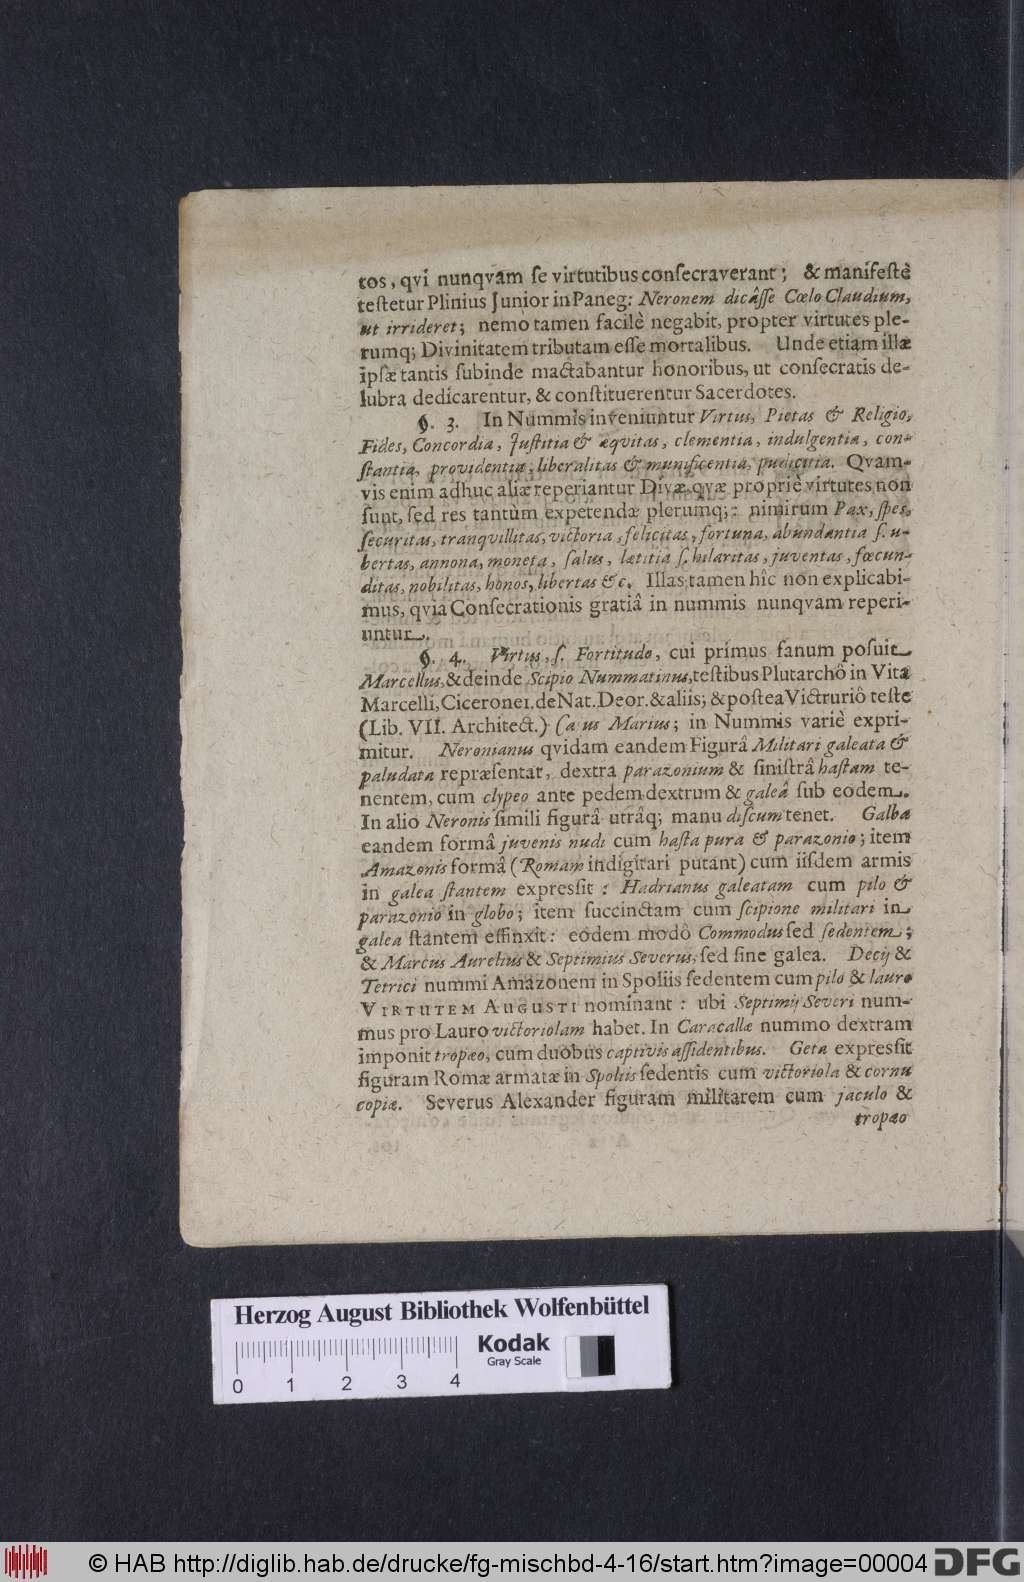 tos, qvi nunqvam ſe virtutibus conſecraverant; & manifeſtè
teſtetur Plinius Junior in Paneg: Neronem dicâſſe Cœlo Claudium,
ut irrideret; nemo tamen facilè negabit, propter virtutes ple-
rumq; Divinitatem tributam eſſe mortalibus. Unde etiam illæ
ipſæ tantis ſubinde mactabantur honoribus, ut conſecratis de-
lubra dedicarentur, & conſtituerentur Sacerdotes.
§. 3. In Nummis inveniuntur Virtus, Pietas & Religio,
Fides, Concordia, Juſtitia & æqvitas, clementia, indulgentia, con-
ſtantia, providentia, liberalitas & munificentia, pudicitia. Qvam-
vis enim adhuc aliæ reperiantur Divæ, qvæ propriè virtutes non
ſunt, ſed res tantùm expetendæ plerumq;: nimirum Pax, ſpes,
ſecuritas, tranqvillitas, victoria, felicitas, fortuna, abundantia ſ. u-
bertas, annona, moneta, ſalus, lætitia ſ. hilaritas, juventas, fœcun-
ditas, nobilitas, honos, libertas &c. Illas tamen hîc non explicabi-
mus, qvia Conſecrationis gratiâ in nummis nunqvam reperi-
untur.
§. 4. Virtus, ſ. Fortitudo, cui prímus fanum poſuit
Marcellus, & deinde Scipio Nummatinus, teſtibus Plutarchô in Vita
Marcelli, Ciceronei. de Nat. Deor. & aliis; & poſtea Victruriô teſte
(Lib. VII. Architect.) Ca us Marius; in Nummis variè expri-
mitur. Neronianus qvidam eandem Figurâ Militari galeata &
paludata repræſentat, dextra parazonium & ſiniſtrâ haſtam te-
nentem, cum clypeo ante pedem dextrum & galeâ ſub eodem.
In alio Neronis ſimili figurâ utrâq; manu diſcum tenet. Galba
eandem formâ juvenis nudi cum haſta pura & parazonio; item
Amazonis formâ (Romam indigitari putant) cum iiſdem armis
in galea ſtantem expreſſit: Hadrianus galeatam cum pilo &
parazonio in globo; item ſuccinctam cum ſcipione militari in
galea ſtantem effinxit: eodem modô Commodus ſed ſedentem;
& Marcus Aurelius & Septimius Severus, ſed ſine galea. Decij &
Tetrici nummi Amazonem in Spoliis ſedentem cum pilo & lauro
VIRTUTEM AUGUSTI nominant: ubi Septimij Severi num-
mus pro Lauro victoriolam habet. In Caracallæ nummo dextram
imponit tropæo, cum duobus captivis aſſidentibus. Geta expreſſit
figuram Romæ armatæ in Spoliis ſedentis cum victoriola & cornu
copiæ. Severus Alexander figuram militarem cum jaculo &
tropæo
Herzog August Bibliothek Wolfenbüttel
Kodak
Gray Scale
0 1 2 3 4
© HAB http://diglib.hab.de/drucke/fg-mischbd-4-16/start.htm?image=00004 DFG